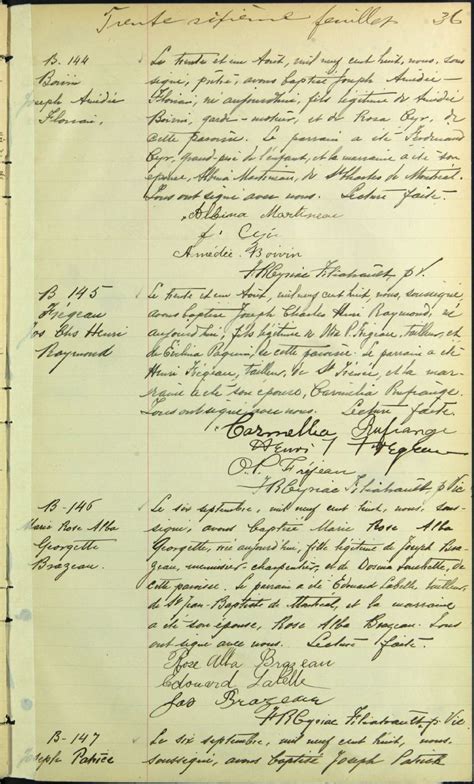 Trente sixième feuillet 36
B- 144
Boivin
Joseph Amédée
Florian,
Le trente et un Août, mil neuf cent huit, nous, sous-
signé, prêtre, avons baptisé Joseph Amédée
Florian, né aujourd'hui, fils légitime de Amédée
Boivin, garde-moteur, et de Rosa Cyr, de
cette paroisse. Le parrain a été Ferdinand
Cyr, grand-père de l'enfant, et la marraine a été son
épouse, Albina Martineau, de St Charles de Montréal.
Tous ont signé avec nous. Lecture faite.
Albina Martineau
f. Cyr
Amédée Boivin
B- 145
Frégeau
Jos Chs Henri
Raymond
Le trente et un Août, mil neuf cent huit, nous, soussigné,
avons baptisé Joseph Charles Henri Raymond, né
aujourd'hui, fils légitime de P. Frégeau, tailleur, et
de Paquin, de cette paroisse. Le parrain a été
Henri Frégeau, tailleur, de St Irénée, et la mar-
raine a été son épouse, Carmélia Rufrange.
Tous ont signé avec nous. Lecture faite.
Carmellia Rufrange
Henri Frégeau
O. P. Frégeau
B- 146
Marie Rose Alba
Georgette
Brazeau
Le six septembre, mil neuf cent huit, nous, sous-
signé, avons baptisé Marie Rose Alba
Georgette, née aujourd'hui, fille légitime de Joseph Bra-
zeau, menuisier-charpentier, et de de
cette paroisse. Le parrain a été Edouard Labelle, tailleur,
de St Jean-Baptiste de Montréal, et la marraine
a été son épouse, Rose Alba Brazeau. Tous
ont signé avec nous. Lecture faite.
Rose Alba Brazeau
Edouard Labelle
Jos Brazeau
B- 147
Joseph Patrice
Le six septembre, mil neuf cent huit, nous,
soussigné, avons baptisé Joseph Patrick